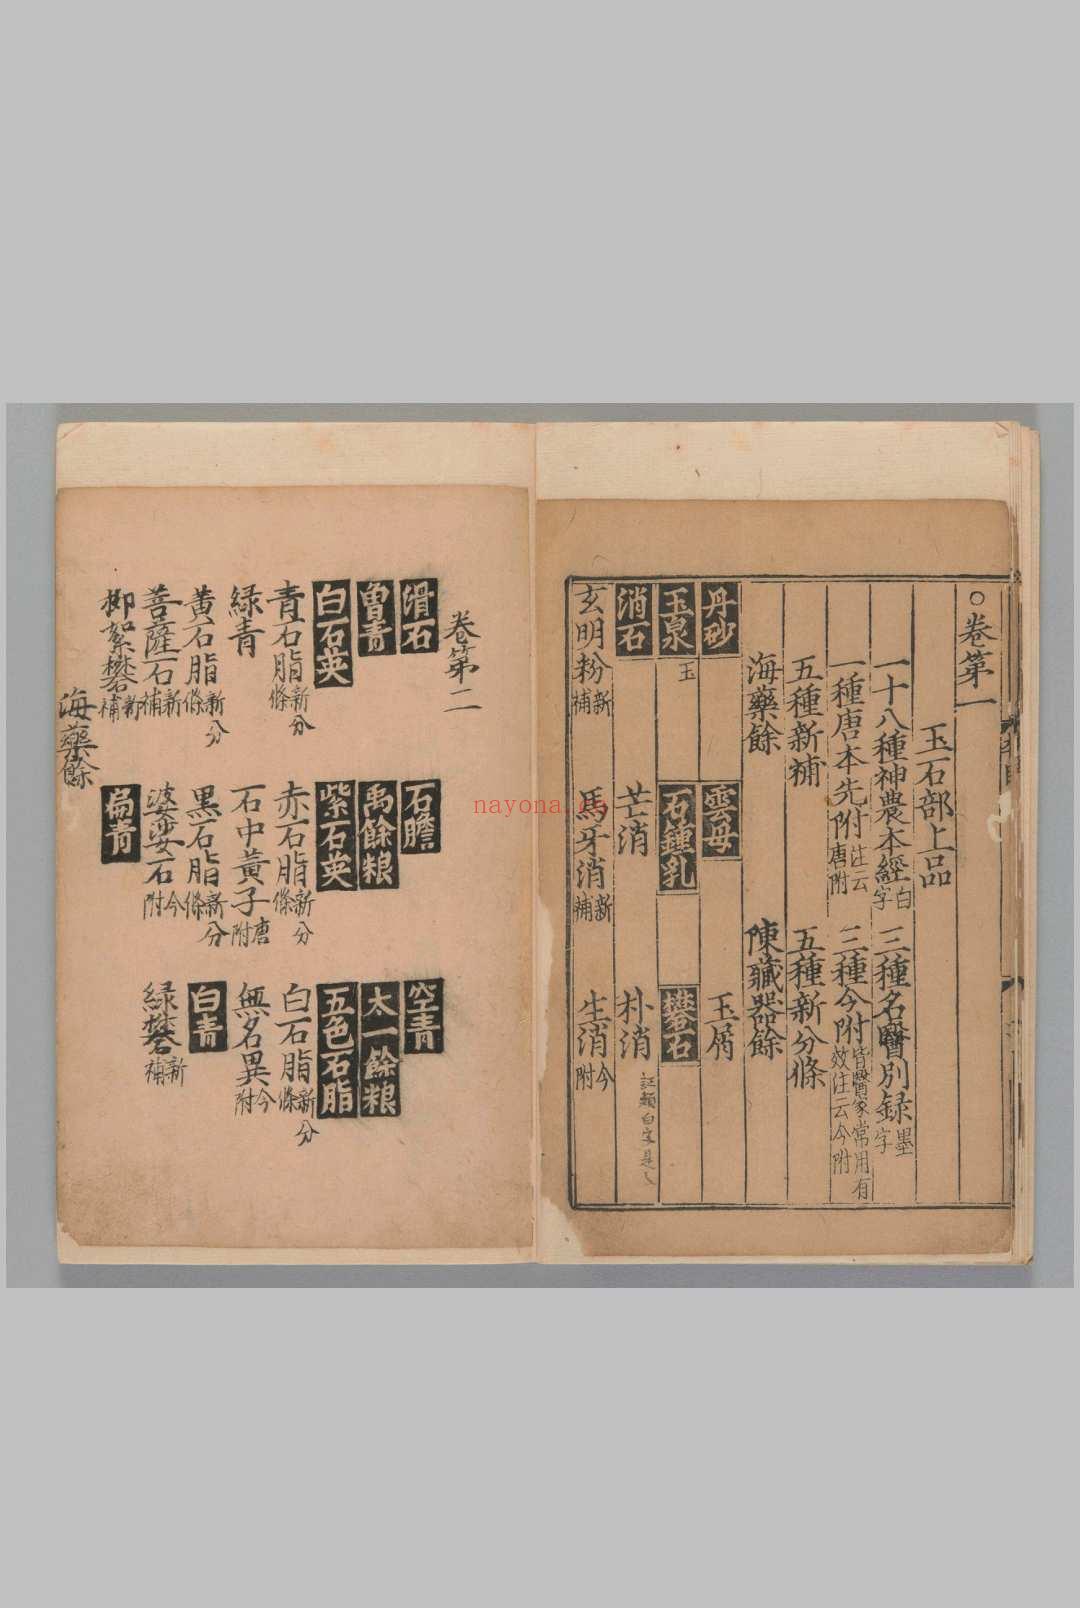 ○卷第一
玉石部上品
一十八種神農本經白字 三種名醫別録墨字
一種唐本先附注云唐附 三種今附皆醫家常用有效注云今附
五種新補 五種新分條
海藥餘 陳藏器餘
丹砂 雲母 玉屑
玉泉玉 石鍾乳 礬石
消石 芒消 朴消 証類白字是
玄明粉新補 馬牙消新補 生消今附
卷第二
滑石 石膽 空青
曾青 禹餘粮 太一餘粮
白石英 紫石英 五色石脂
青石脂新分條 赤石脂新分條 白石脂新分條
緑青 石中黄子唐附 無名異今附
黄石脂新分條 黑石脂新分條 白青
菩薩石新補 婆娑石今附 緑礬新補
柳絮礬新補 扁青
海藥餘
nayona.cn